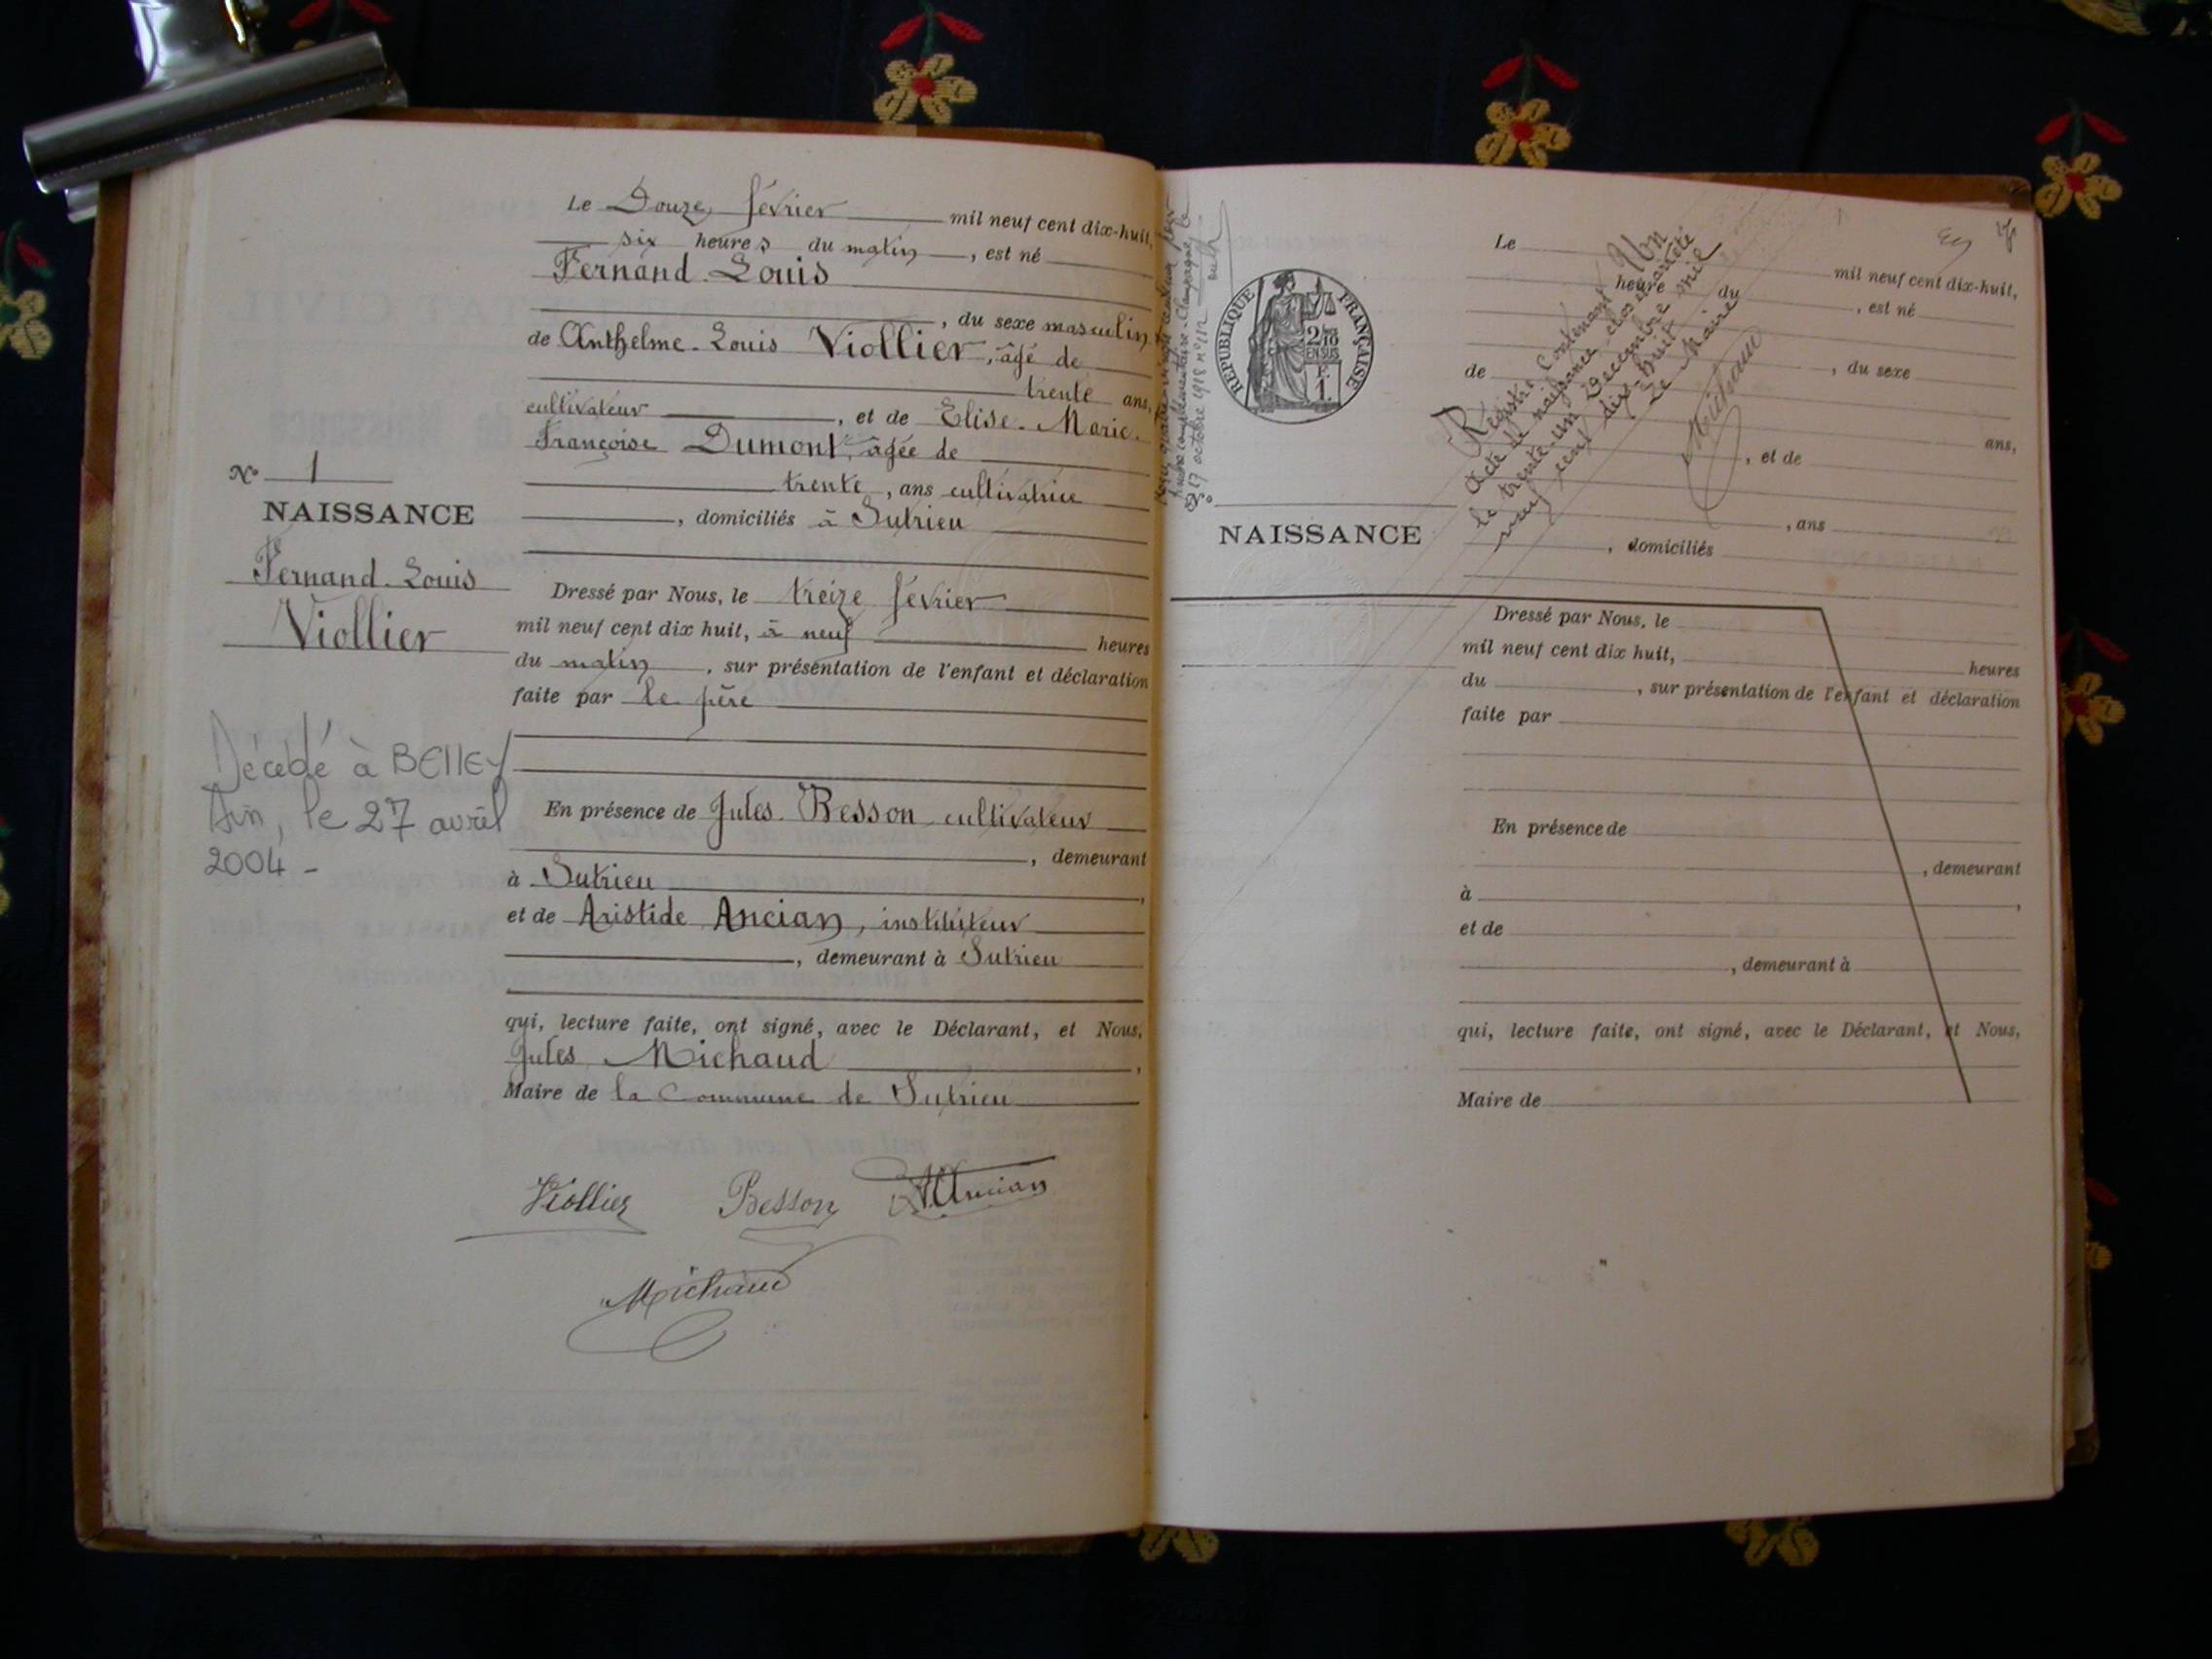 Le Douze février mil neuf cent dix-huit,
six heures du matin, est né
Fernand Louis
, du sexe masculin
de Anthelme Louis Viollier, âgé de
trente ans,
cultivateur, et de Elise Marie
Françoise Dumont, âgée de
trente, ans cultivatrice
, domiciliés à Sutrieu
N° 1
NAISSANCE
Fernand Louis
Viollier
Décédé à BEllEY
Ain, le 27 avril
2004 -
Dressé par Nous, le treize février
mil neuf cent dix huit, à neuf heures
du matin, sur présentation de l'enfant et déclaration
faite par le père
En présence de Jules Besson cultivateur
, demeurant
à Sutrieu,
et de Aristide Ancian, instituteur
, demeurant à Sutrieu
qui, lecture faite, ont signé, avec le Déclarant, et Nous,
Jules Michaud,
Maire de la Commune de Sutrieu
Viollier Besson Ancian
Michaud
27 octobre 1918 n° 112
RÉPUBLIQUE FRANÇAISE
2/10
EN SUS
F.
1.
NAISSANCE
Le mil neuf cent dix-huit,
heure du, est né
, du sexe
de
ans,
, et de
, ans
, domiciliés
Registre contenant Un
acte de naissance clos et arrêté
le trente-un Décembre mil
neuf cent dix-huit
Le Maire
Michaud
Dressé par Nous, le
mil neuf cent dix huit, heures
du, sur présentation de l'enfant et déclaration
faite par
En présence de
, demeurant
à,
et de
, demeurant à
qui, lecture faite, ont signé, avec le Déclarant, et Nous,
Maire de